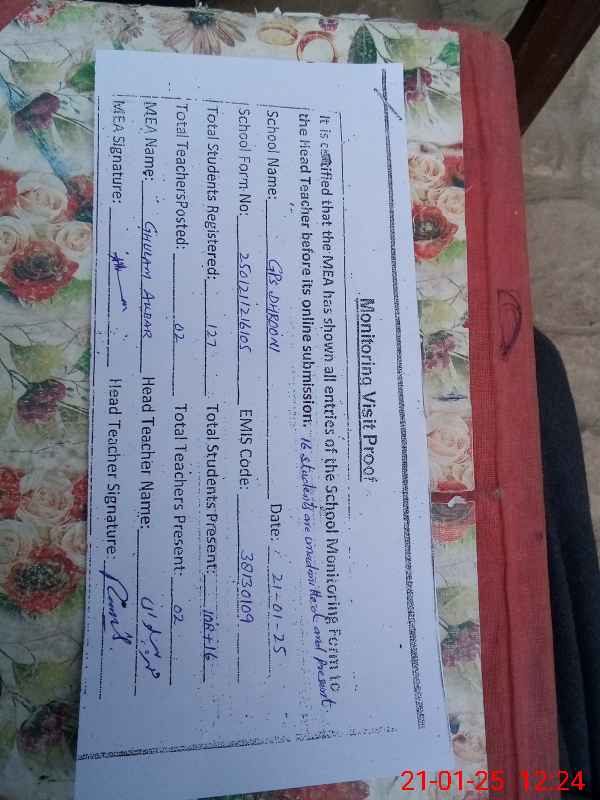 Monitoring Visit Proof
It is certified that the MEA has shown all entries of the School Monitoring Form to
the Head Teacher before its online submission. 16 students are unadmitted and present
School Name: GPS DHROONI Date: 21-01-25
School Form No: 250121216105 EMIS Code: 38130109
Total Students Registered: 127 Total Students Present: 108+16
Total TeachersPosted: 02 Total Teachers Present: 02
MEA Name: GHULAM AKBAR Head Teacher Name:
MEA Signature: Head Teacher Signature:
21-01-25 12:24